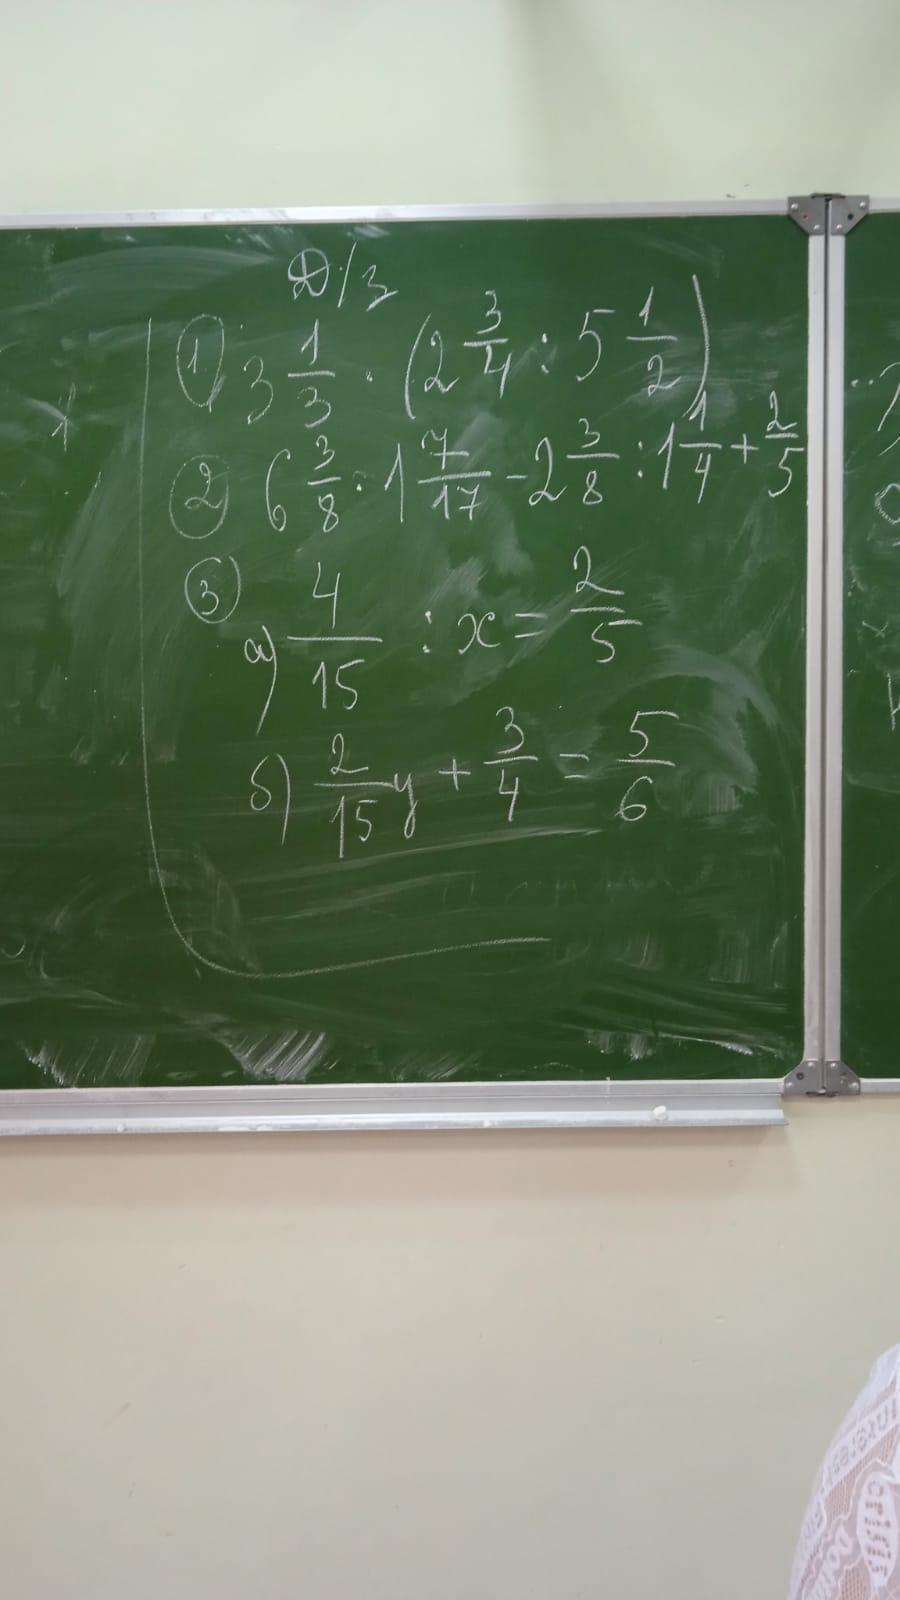 Д/з
① 3 1/3 · (2 3/4 : 5 1/2)
② 6 3/8 : 1 7/17 - 2 3/8 : 1 1/4 + 2/5
③
а) 4/15 : x = 2/5
б) 2/15 y + 3/4 = 5/6